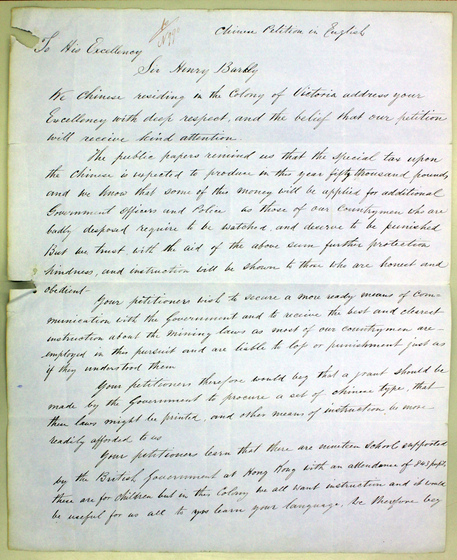 Chinese Petition in English
To His Excellency
Sir Henry Barkly
We Chinese residing in the Colony of Victoria address your
Excellency with deep respect, and the belief that our petition
will receive kind attention.
The public papers remind us that the special tax upon
the Chinese is expected to produce in this year fifty thousand pounds
and we know that some of this money will be applied for additional
Government Officers and Police as those of our Countrymen who are
badly disposed require to be watched, and deserve to be punished
But we trust with the aid of the above sum further protection
kindness, and instruction will be shown to those who are honest and
obedient
Your petitioners wish to secure a more ready means of com-
munication with the Government and to receive the best and clearest
instruction about the mining laws as most of our countrymen are
employed in this pursuit and are liable to loss or punishment just as
if they understood them
Your petitioners therefore would beg that a grant should be
made by the Government to procure a set of chinese type, that
then laws might be printed, and other means of instruction be more
readily afforded to us
Your petitioners learn that there are nineteen schools supported
by the British Government at Hong Kong with an attendance of
these are for children but in this Colony we all want instruction and it would
be useful for us all to learn your language. We therefore beg